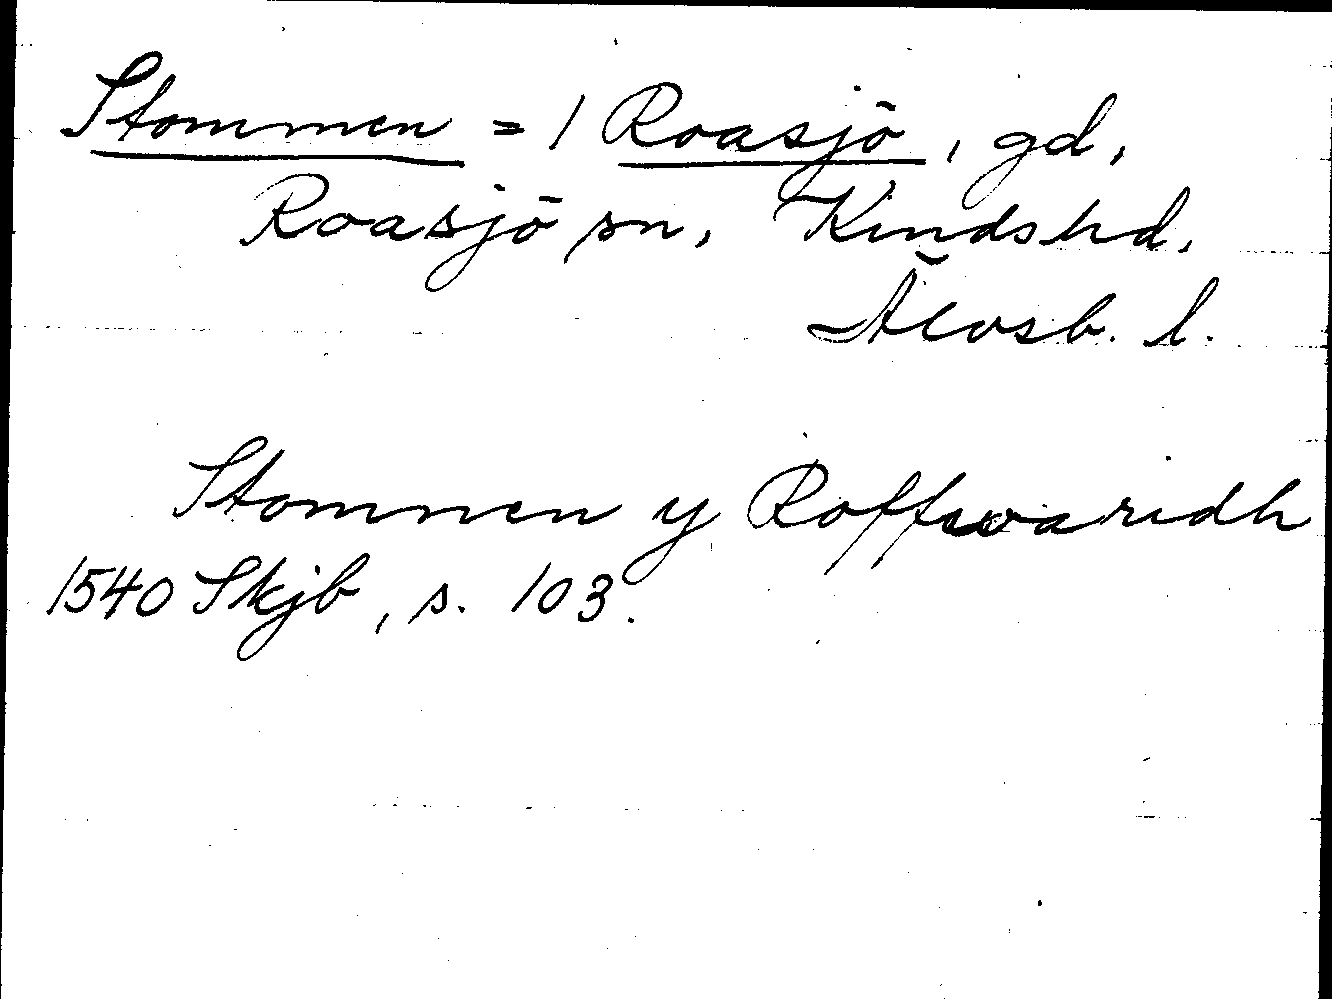 Stommen = 1 Roasjö, gd,
Roasjö sn, Kinds hd,
Älvsb. l.
Stommen y Roffwaridh
1540 Skjb, s. 103.